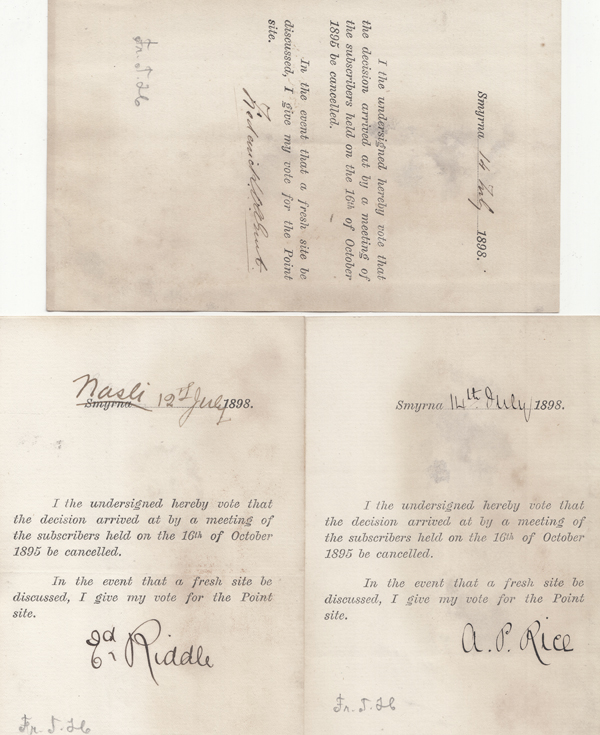 Smyrna 14 July 1898.
I the undersigned hereby vote that
the decision arrived at by a meeting of
the subscribers held on the 16th of October
1895 be cancelled.
In the event that a fresh site be
discussed, I give my vote for the Point
site.
Fr. T. Hb
Nasli
Smyrna 12th July 1898.
I the undersigned hereby vote that
the decision arrived at by a meeting of
the subscribers held on the 16th of October
1895 be cancelled.
In the event that a fresh site be
discussed, I give my vote for the Point
site.
Ed Riddle
Fr. T. Hb
Smyrna 14th July 1898.
I the undersigned hereby vote that
the decision arrived at by a meeting of
the subscribers held on the 16th of October
1895 be cancelled.
In the event that a fresh site be
discussed, I give my vote for the Point
site.
A. P. Rice
Fr. T. Hb